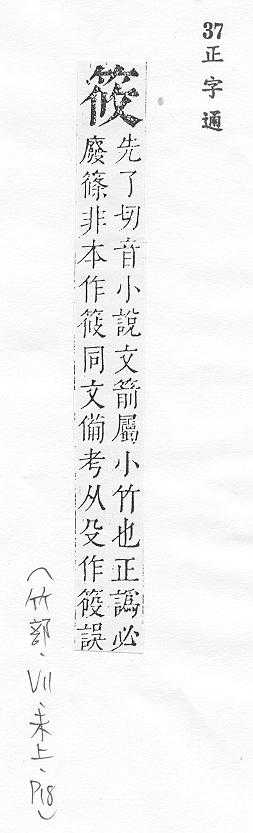 37正字通
筱
先了切音小說文箭屬小竹也正譌必
廢篠非本作筱同文備考从殳作䈊誤
(竹部、VII、未上、P18)